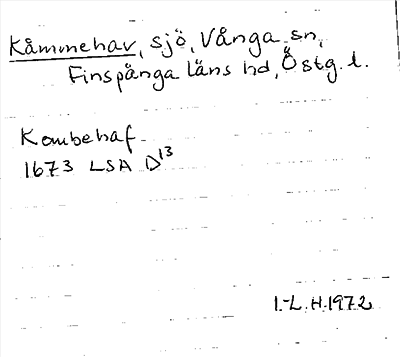 Kåmmehav, sjö, Vånga sn,
Finspånga läns hd, Östg. l.
Kambehaf
1673 LSA D13
I.-L.H.1972